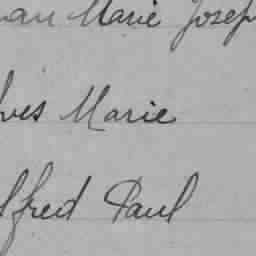 an Marie Josep
ves Marie
lfred Paul